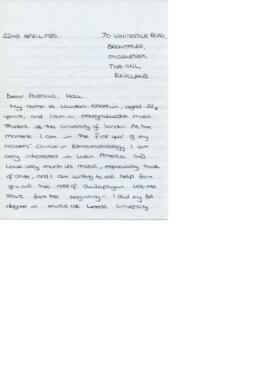 22ND APRIL 1985. 70 WHITESTILE ROAD,
BRENTFORD,
MIDDLESEX
TW8 9NL,
ENGLAND
Dear Patricio, Hola
My name is aged 22
years, and I am a postgraduate music
student at the University of London. At the
moment I am in the first year of my
masters' course in Ethnomusicology. I am
very interested in Latin America and
love very much its music, especially that
of Chile, and I am writing to ask help from
you and the rest of Quilapayun. Let me
start from the beginning - I did my BA
degree in music at Leeds University